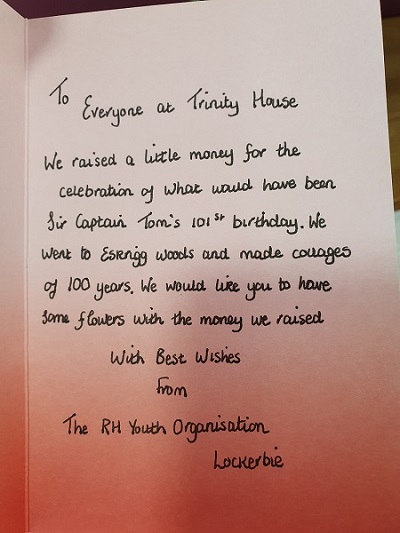 To
Everyone at Trinity House
We raised a little money for the
celebration of what would have been
Sir Captain Tom's 101st birthday. We
went to Eskrigg woods and made collages
of 100 years. We would like you to have
some flowers with the money we raised
With Best Wishes
From
The RH Youth Organisation
Lockerbie